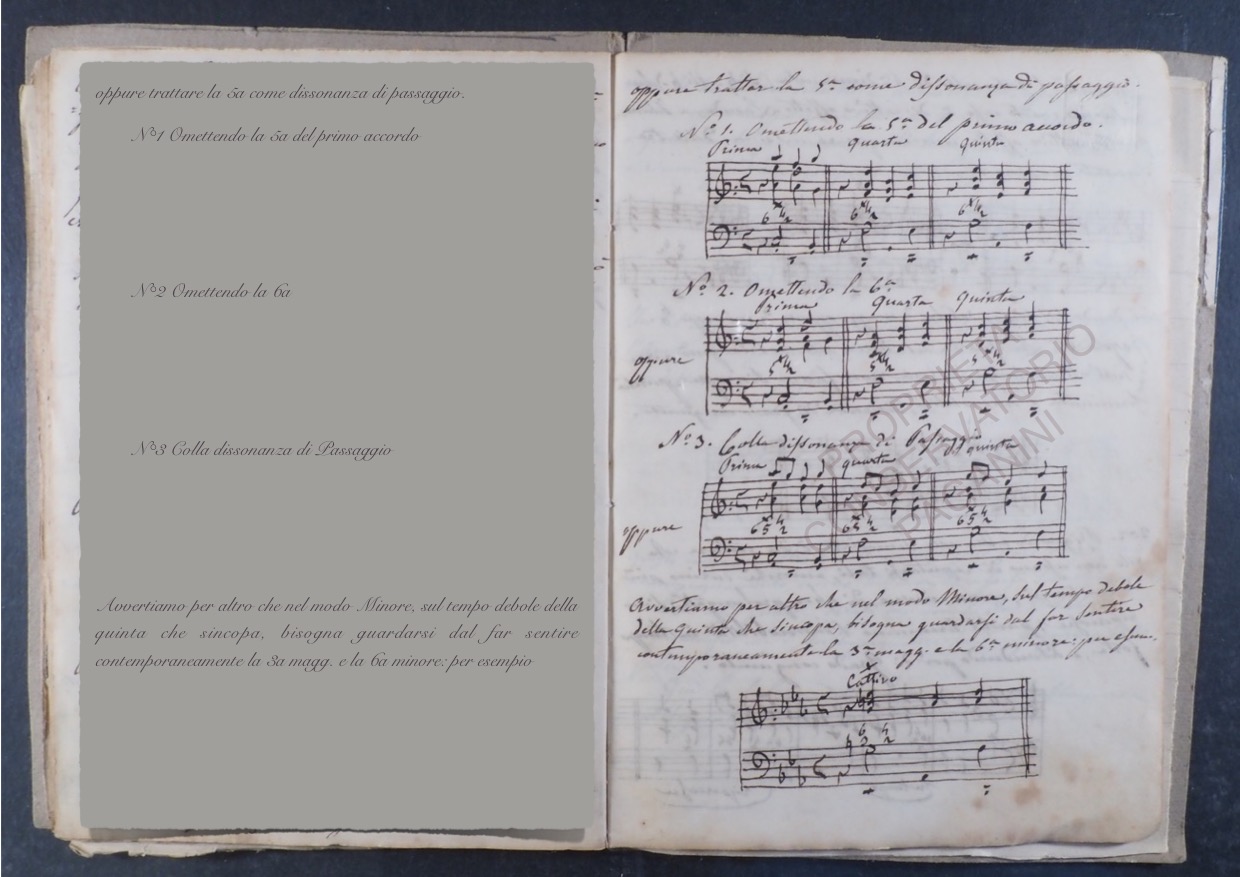 oppure trattare la 5a come dissonanza di passaggio.
Nº1 Omettendo la 5a del primo accordo
Nº2 Omettendo la 6a
Nº3 Colla dissonanza di Passaggio
Avvertiamo per altro che nel modo Minore, sul tempo debole della
quinta che sincopa, bisogna guardarsi dal far sentire
contemporaneamente la 3a magg. e la 6a minore: per esempio
oppure trattar la 5ª come dissonanza di passaggio.
Nº 1. Omettendo la 5ª del primo accordo.
Prima quarta quinta
Nº 2. Omettendo la 6ª
Prima quarta quinta
oppure
Nº 3. Colla dissonanza di Passaggio
Prima quarta quinta
oppure
Avvertiamo per altro che nel modo Minore, sul tempo debole
della Quinta che sincopa, bisogna guardarsi dal far sentire
contemporaneamente la 3ª magg. e la 6ª minore: per esem.
Cattivo
PROPRIETÀ
CONSERVATORIO
PAGANINI